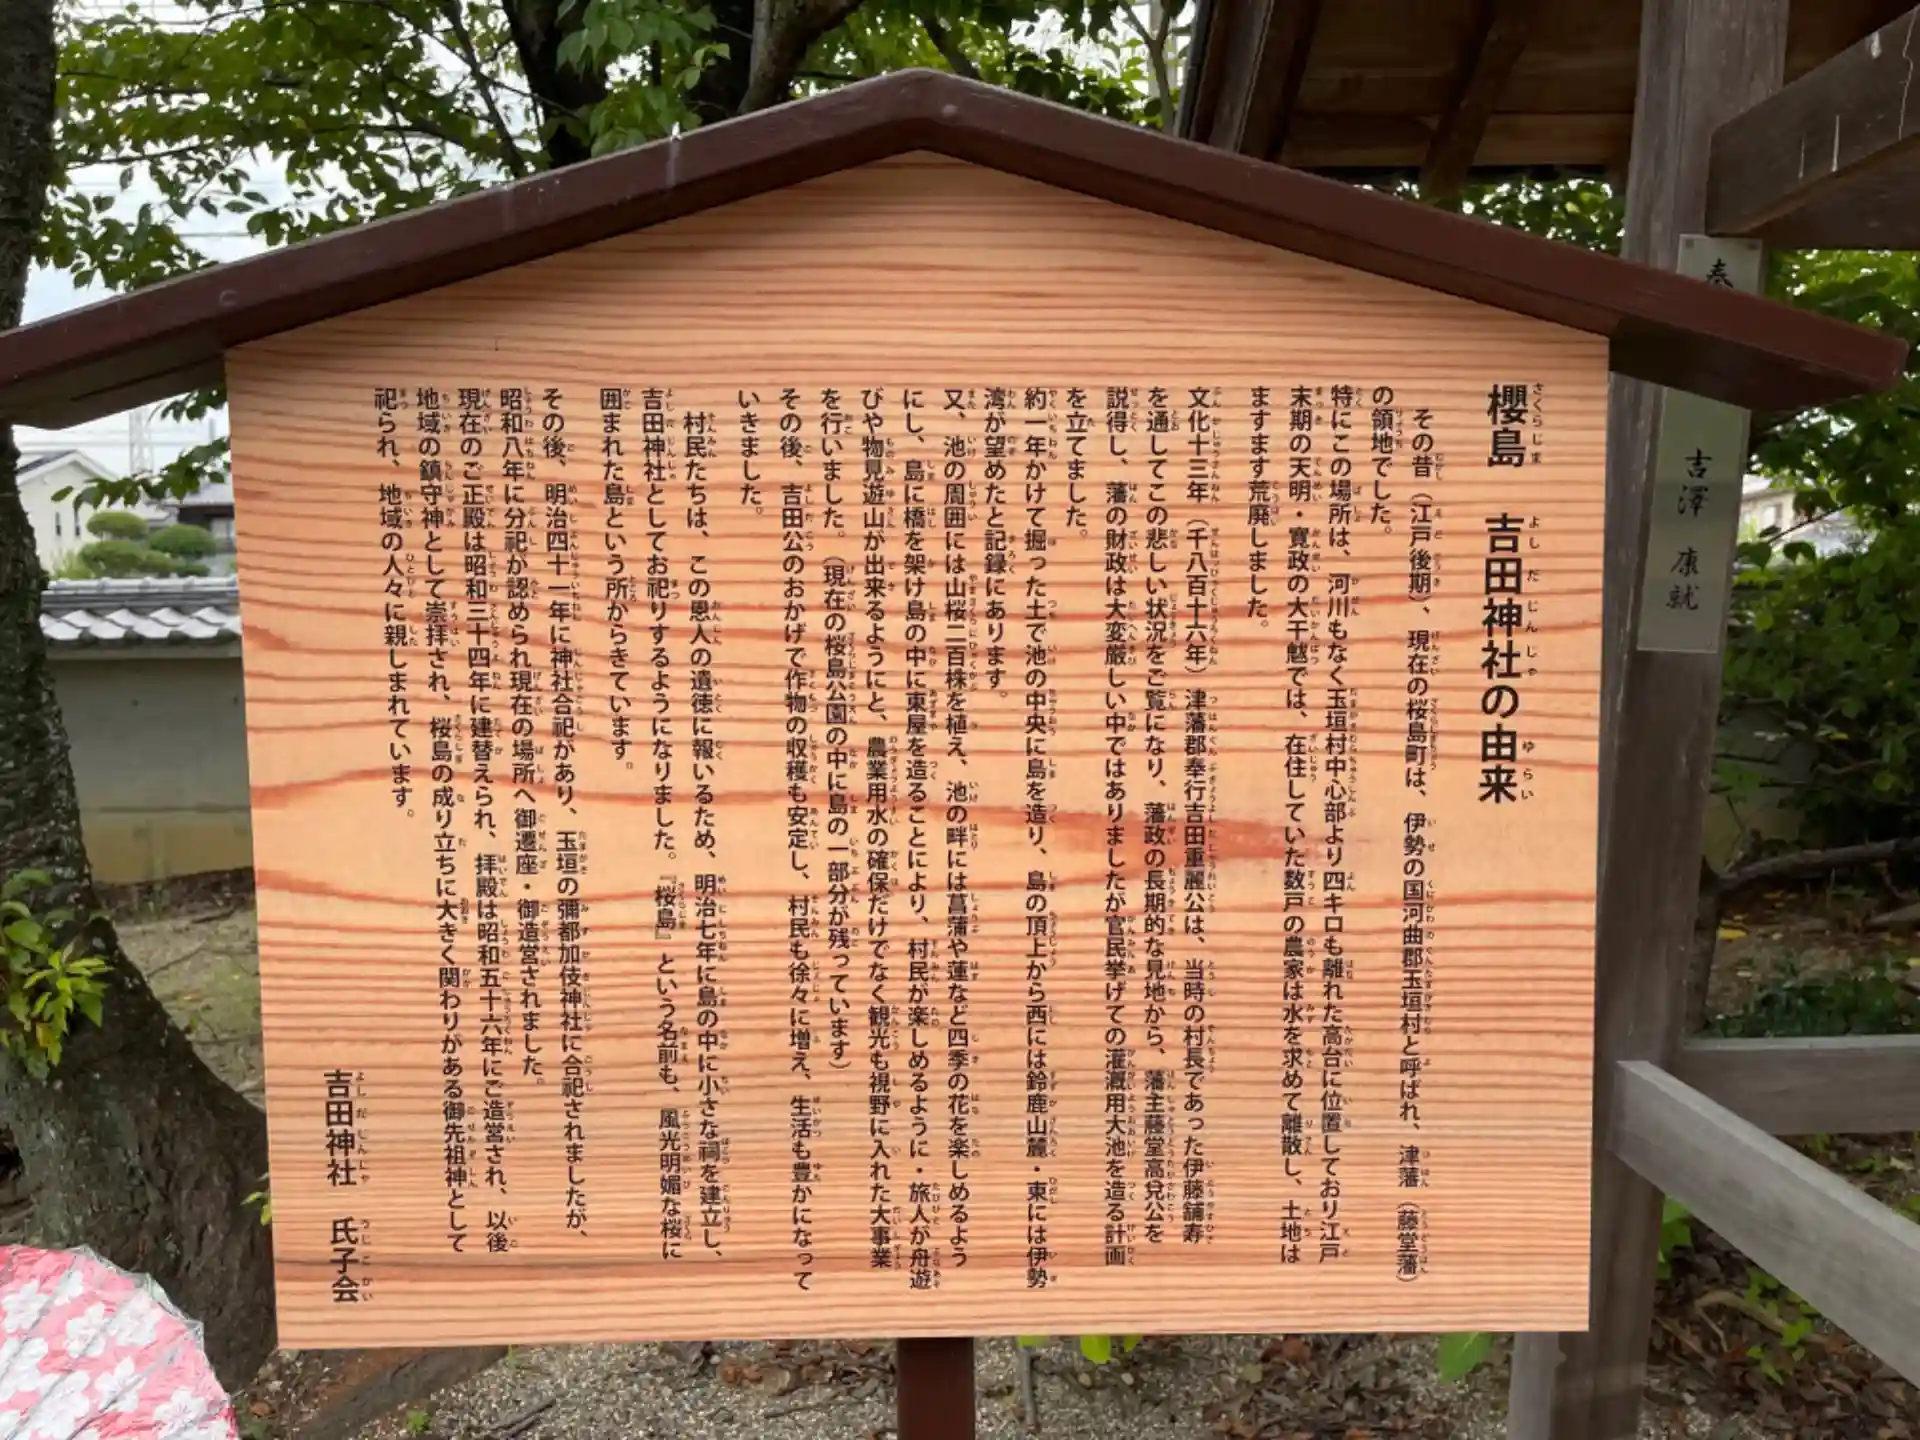 櫻島 吉田神社の由来
その昔（江戸後期）、現在の桜島町は、伊勢の国河曲郡玉垣村と呼ばれ、津藩（藤堂藩）
の領地でした。
特にこの場所は、河川もなく玉垣村中心部より四キロも離れた高台に位置しており江戸
末期の天明・寛政の大干魃では、在住していた数戸の農家は水を求めて離散し、土地は
ますます荒廃しました。
文化十三年（千八百十六年）津藩郡奉行吉田重麗公は、当時の村長であった伊藤舗寿
を通してこの悲しい状況をご覧になり、藩政の長期的な見地から、藩主藤堂高兌公を
説得し、藩の財政は大変厳しい中ではありましたが官民挙げての灌漑用大池を造る計画
を立てました。
約一年かけて掘った土で池の中央に島を造り、島の頂上から西には鈴鹿山麓・東には伊勢
湾が望めたと記録にあります。
又、池の周囲には山桜二百株を植え、池の畔には菖蒲や蓮など四季の花を楽しめるよう
にし、島に橋を架け島の中に東屋を造ることにより、村民が楽しめるように・旅人が舟遊
びや物見遊山が出来るようにと、農業用水の確保だけでなく観光も視野に入れた大事業
を行いました。（現在の桜島公園の中に島の一部分が残っています）
その後、吉田公のおかげで作物の収穫も安定し、村民も徐々に増え、生活も豊かになって
いきました。
村民たちは、この恩人の遺徳に報いるため、明治七年に島の中に小さな祠を建立し、
吉田神社としてお祀りするようになりました。『桜島』という名前も、風光明媚な桜に
囲まれた島という所からきています。
その後、明治四十一年に神社合祀があり、玉垣の彌都加伎神社に合祀されましたが、
昭和八年に分祀が認められ現在の場所へ御遷座・御造営されました。
現在のご正殿は昭和三十四年に建替えられ、拝殿は昭和五十六年にご造営され、以後
地域の鎮守神として崇拝され、桜島の成り立ちに大きく関わりがある御先祖神として
祀られ、地域の人々に親しまれています。
吉田神社 氏子会
吉澤 康就